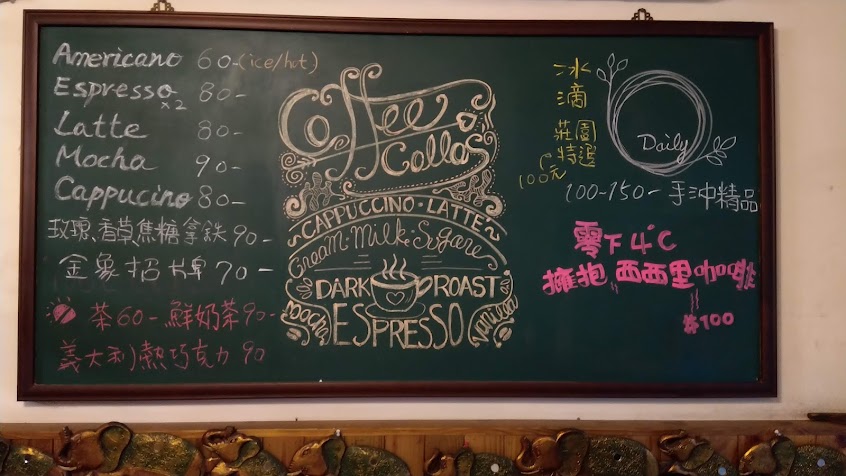 Americano 60-(ice/hot)
Espresso x2 80-
Latte 80-
Mocha 90-
Cappucino 80-
玫瑰、香草、焦糖拿鐵 90-
金象招牌 70-
茶60- 鮮奶茶90-
義大利熱巧克力 90
Coffee
Collas
CAPPUCCINO · LATTE
Cream · Milk · Sugare
DARK ROAST
Mocha
ESPRESSO
Vanilla
冰滴
莊園特選
100元
Daily
100-150- 手沖精品
零下4°C
擁抱"西西里咖啡
$100